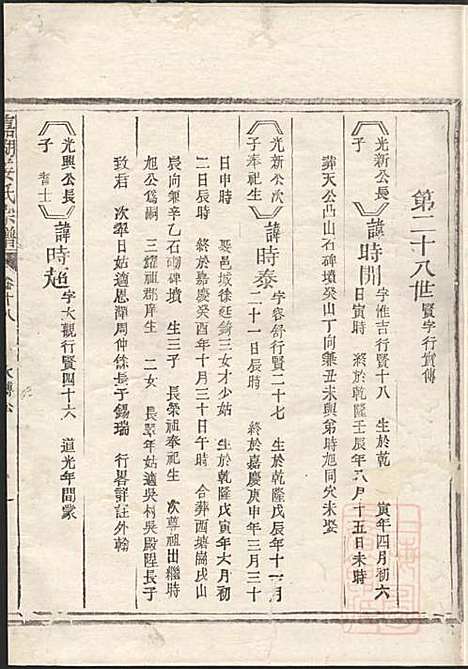 第二十八世 賢字行實傳
光新公長子 諱時開 字惟吉行賢十八 生於乾 寅年四月初六
日寅時 終於乾隆壬辰年八月十五日未時
葬天公凸山石碑墳癸山丁向兼丑未與弟時旭同穴未娶
光新公次子奉祀生 諱時泰 字容舒行賢二十七 生於乾隆戊辰年十一月
二十一日辰時 終於嘉慶庚申年三月三十
日申時 娶邑城徐廷錡三女才少姑 生於乾隆戊寅年六月初
二日辰時 終於嘉慶癸酉年十月三十日午時 合葬酉塘 戌山
辰向兼辛乙石碑墳 生三子 長榮祖奉祀生 次尊祖出繼時
旭公為嗣 三耀祖郡庠生 二女 長翠年姑適吳村吳殿陞長子
致君 次翠日姑適思潭周仲侏長子錫瑞 行畧詳註外翰
光照公長子 耆士 諱時超 字大觀行賢四十六 道光年間蒙
氏宗譜
卷十八